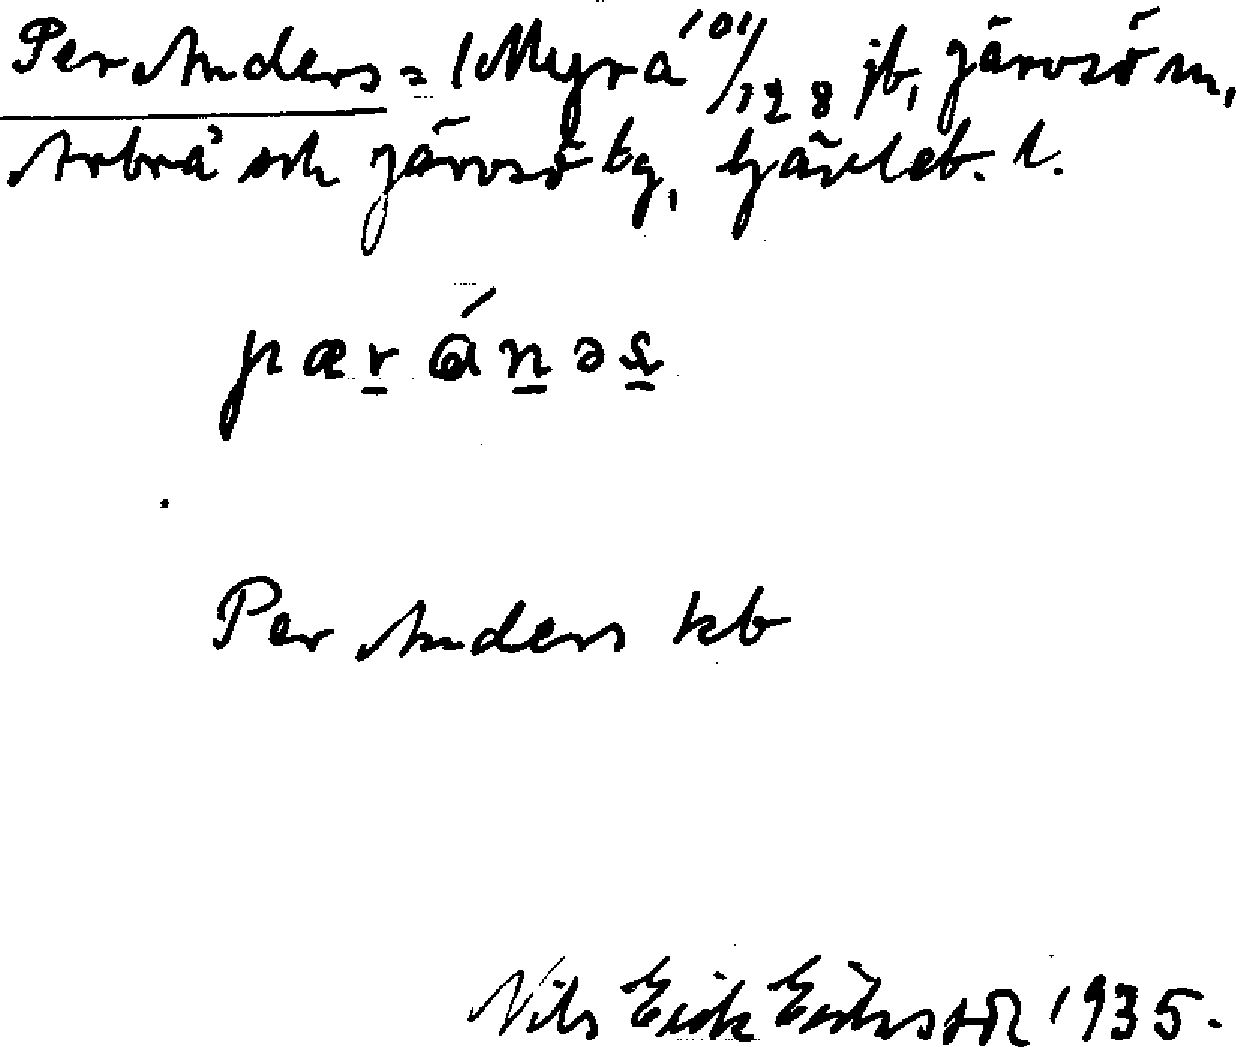 Per Anders = 1 Myra 101/128 jb, Järvsö sn,
Arbrå och Järvsö tg, Gävleb. l.
pær ánəs
Per Anders kb
Nils Erik Eriksson 1935.